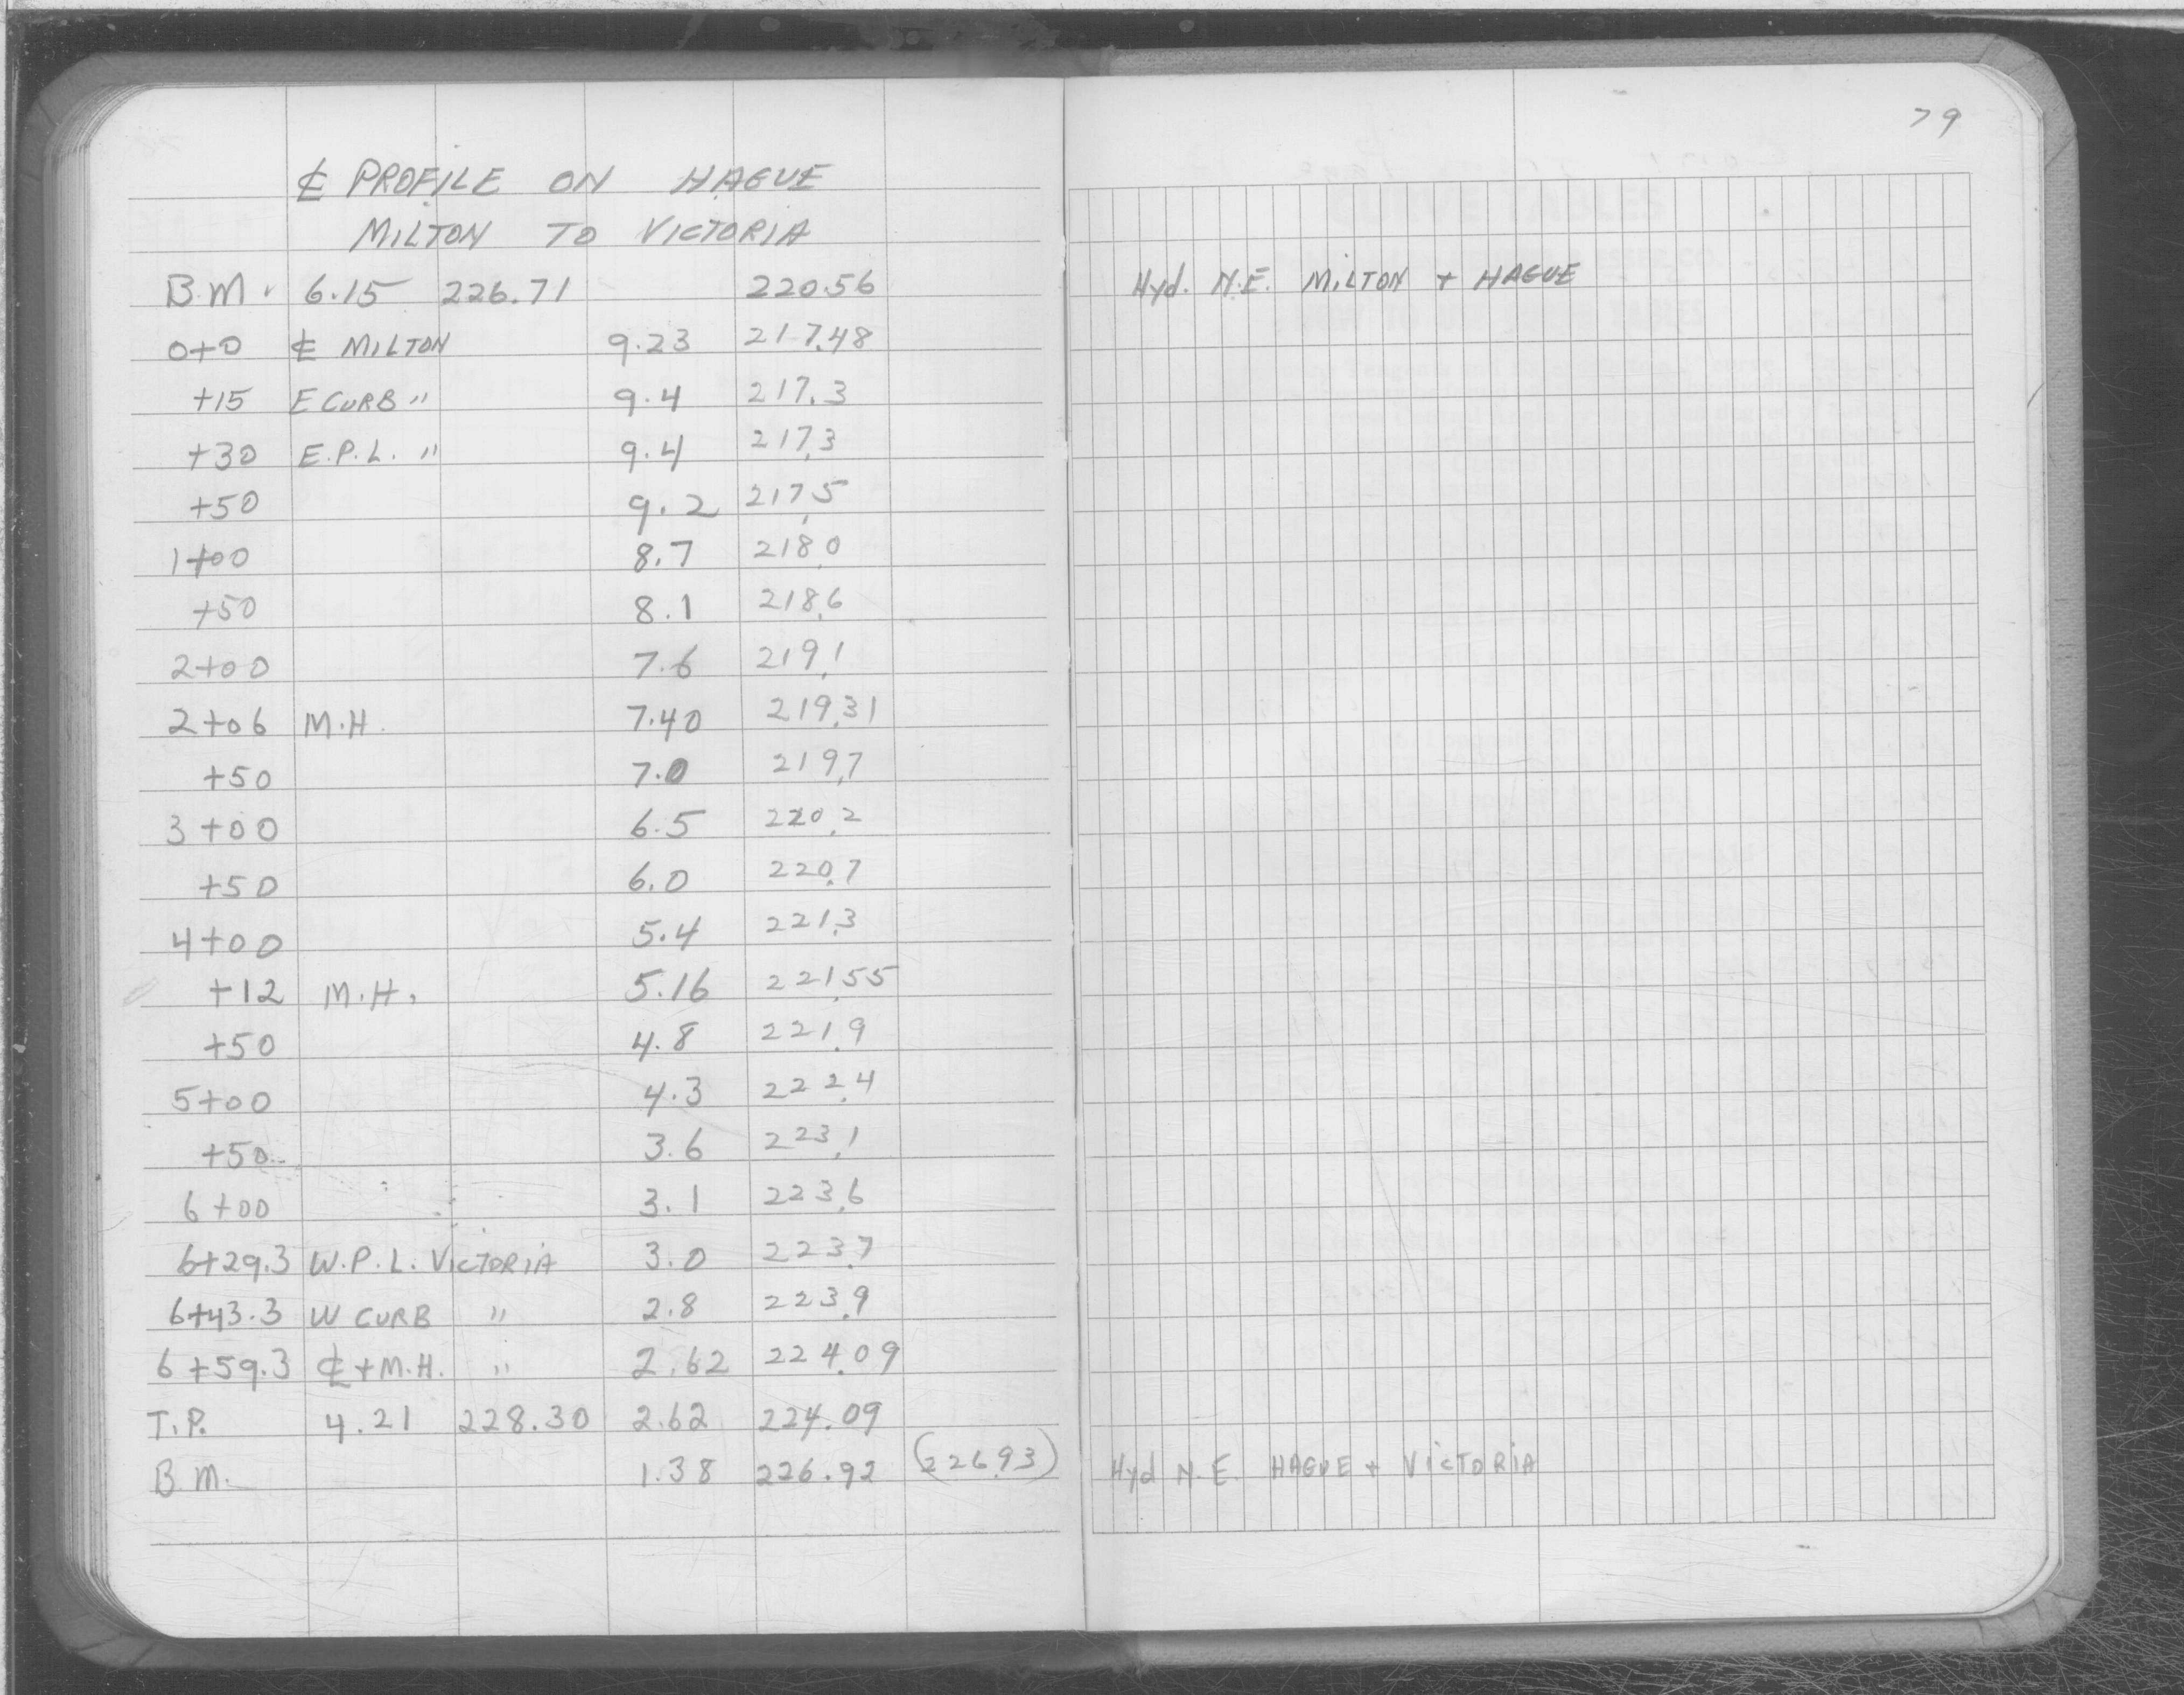 ℄ PROFILE ON HAGUE
MILTON TO VICTORIA
B.M. 6.15 226.71 220.56
0+0 ℄ MILTON 9.23 217.48
+15 E CURB " 9.4 217.3
+30 E.P.L. " 9.4 217.3
+50 9.2 217.5
1+00 8.7 218.0
+50 8.1 218.6
2+00 7.6 219.1
2+06 M.H. 7.40 219.31
+50 7.0 219.7
3+00 6.5 220.2
+50 6.0 220.7
4+00 5.4 221.3
+12 M.H. 5.16 221.55
+50 4.8 221.9
5+00 4.3 222.4
+50 3.6 223.1
6+00 3.1 223.6
6+29.3 W.P.L. VICTORIA 3.0 223.7
6+43.3 W CURB " 2.8 223.9
6+59.3 ℄ + M.H. " 2.62 224.09
T.P. 4.21 228.30 2.62 224.09
B.M. 1.38 226.92 (226.93)
79
Hyd. N.E. MILTON + HAGUE
Hyd N.E. HAGUE + VICTORIA